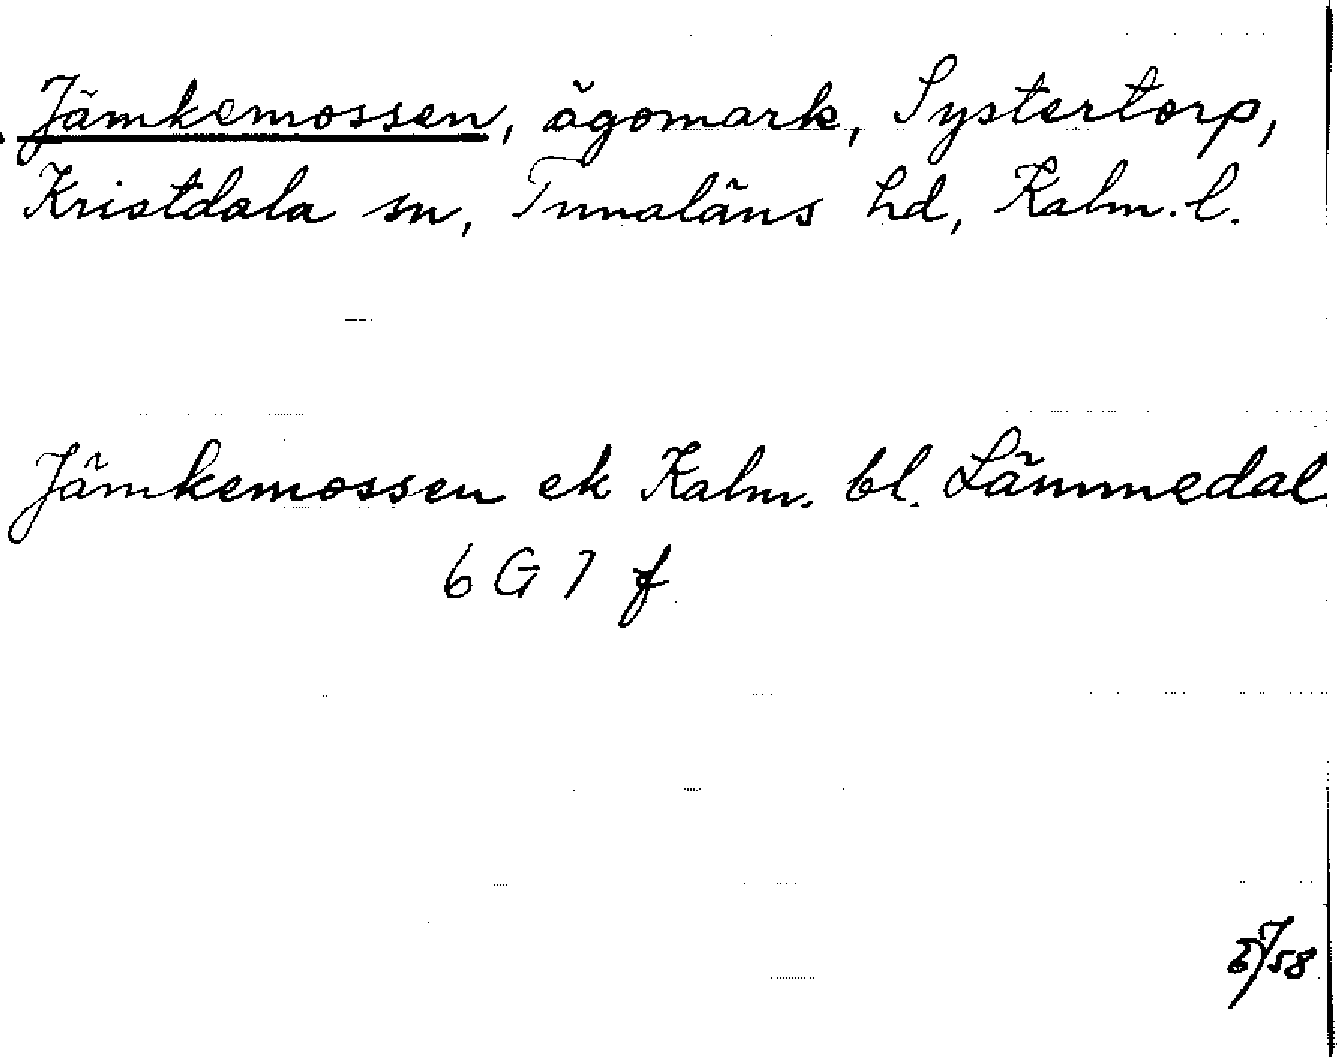 Jämkemossen, ägomark, Systertorp,
Kristdala sn, Tunaläns hd, Kalm. l.
Jämkemossen ek Kalm. bl. Lämmedal
6 G 7 f